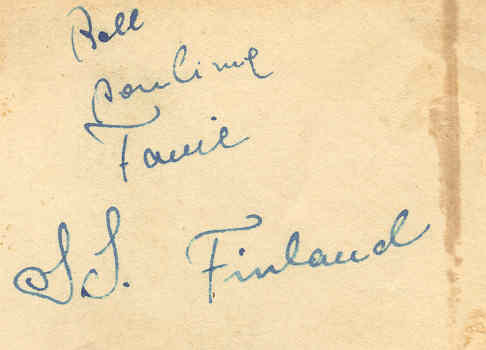 Bell
Pauline
Fannie
S.S. Finland